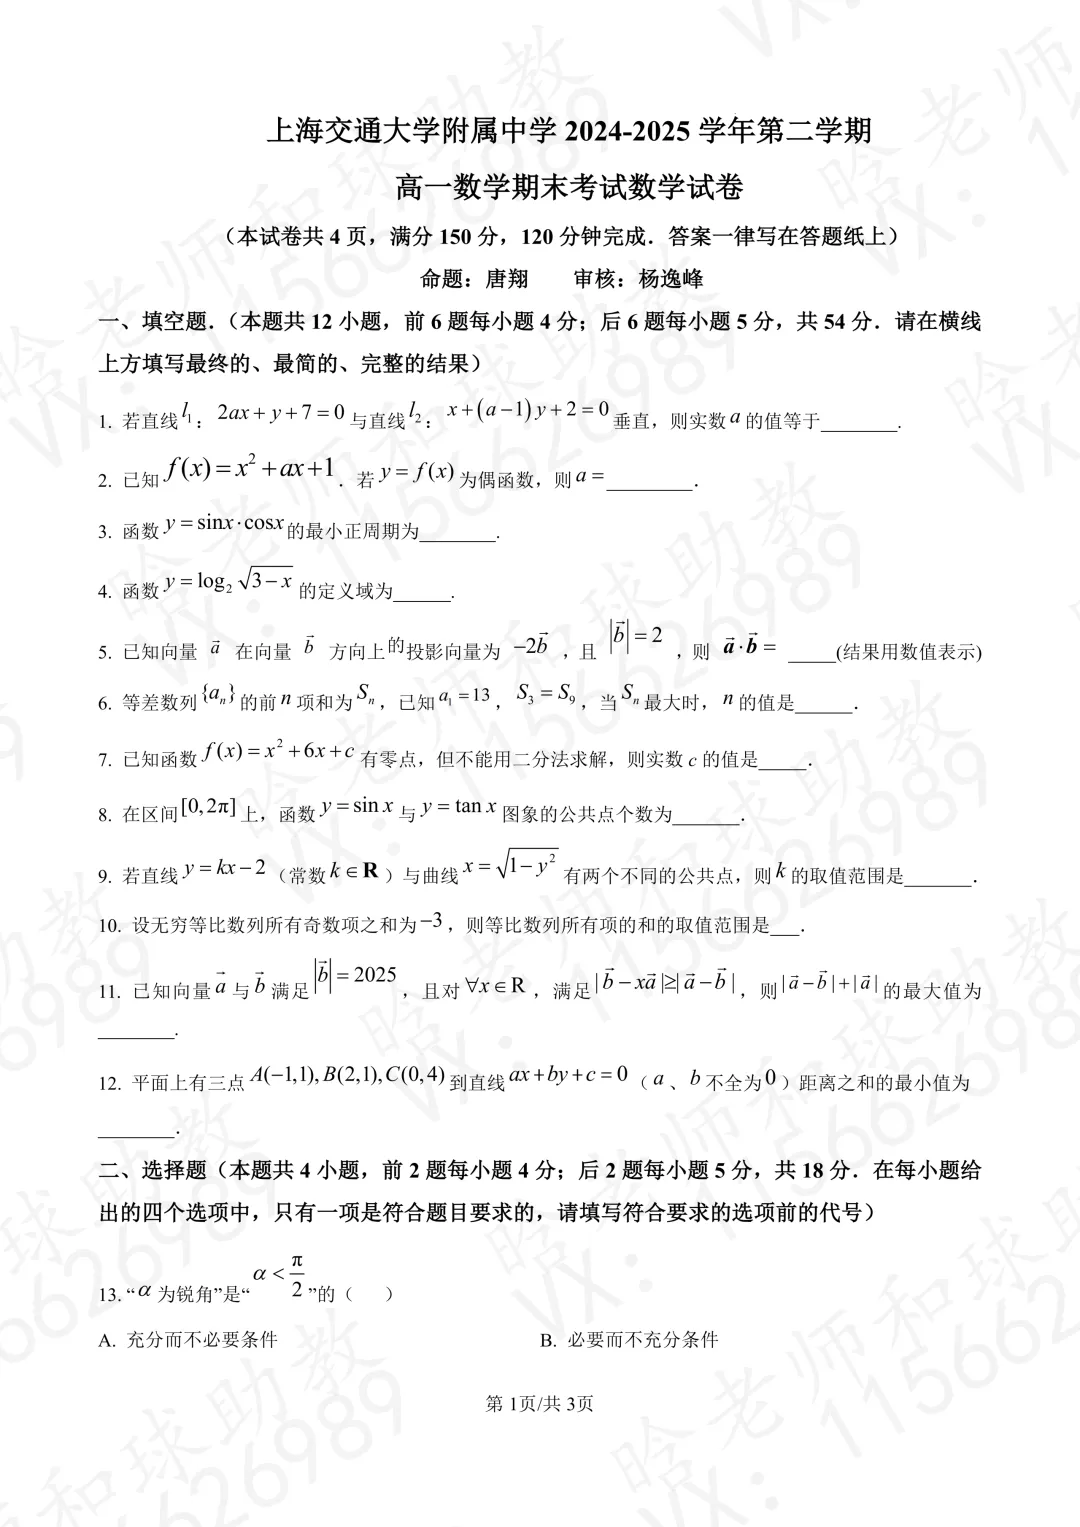 上海交通大学附属中学 2024-2025 学年第二学期
高一数学期末考试数学试卷
（本试卷共 4 页，满分 150 分，120 分钟完成．答案一律写在答题纸上）
命题：唐翔　　审核：杨逸峰
一、填空题．（本题共 12 小题，前 6 题每小题 4 分；后 6 题每小题 5 分，共 54 分．请在横线
上方填写最终的、最简的、完整的结果）
1. 若直线 l₁：2ax + y + 7 = 0 与直线 l₂：x + (a − 1)y + 2 = 0 垂直，则实数 a 的值等于________.
2. 已知 f(x) = x² + ax + 1．若 y = f(x) 为偶函数，则 a = _________．
3. 函数 y = sinx·cosx 的最小正周期为________.
4. 函数 y = log₂ √(3 − x) 的定义域为______.
5. 已知向量 a⃗ 在向量 b⃗ 方向上的投影向量为 −2b⃗，且 |b⃗| = 2，则 a⃗·b⃗ = _____(结果用数值表示)
6. 等差数列 {aₙ} 的前 n 项和为 Sₙ，已知 a₁ = 13，S₃ = S₉，当 Sₙ 最大时，n 的值是______．
7. 已知函数 f(x) = x² + 6x + c 有零点，但不能用二分法求解，则实数 c 的值是_____．
8. 在区间 [0, 2π] 上，函数 y = sin x 与 y = tan x 图象的公共点个数为_______．
9. 若直线 y = kx − 2（常数 k ∈ R）与曲线 x = √(1 − y²) 有两个不同的公共点，则 k 的取值范围是_______．
10. 设无穷等比数列所有奇数项之和为 −3，则等比数列所有项的和的取值范围是___．
11. 已知向量 a⃗ 与 b⃗ 满足 |b⃗| = 2025，且对 ∀x ∈ R，满足 |b⃗ − xa⃗| ≥ |a⃗ − b⃗|，则 |a⃗ − b⃗| + |a⃗| 的最大值为
________.
12. 平面上有三点 A(−1,1), B(2,1), C(0,4) 到直线 ax + by + c = 0（a、b 不全为 0）距离之和的最小值为
________．
二、选择题（本题共 4 小题，前 2 题每小题 4 分；后 2 题每小题 5 分，共 18 分．在每小题给
出的四个选项中，只有一项是符合题目要求的，请填写符合要求的选项前的代号）
13. “α 为锐角”是“α < π/2”的（　　）
A. 充分而不必要条件　　B. 必要而不充分条件
第 1页/共 3页
晗老师和球助教
VX：1156626989